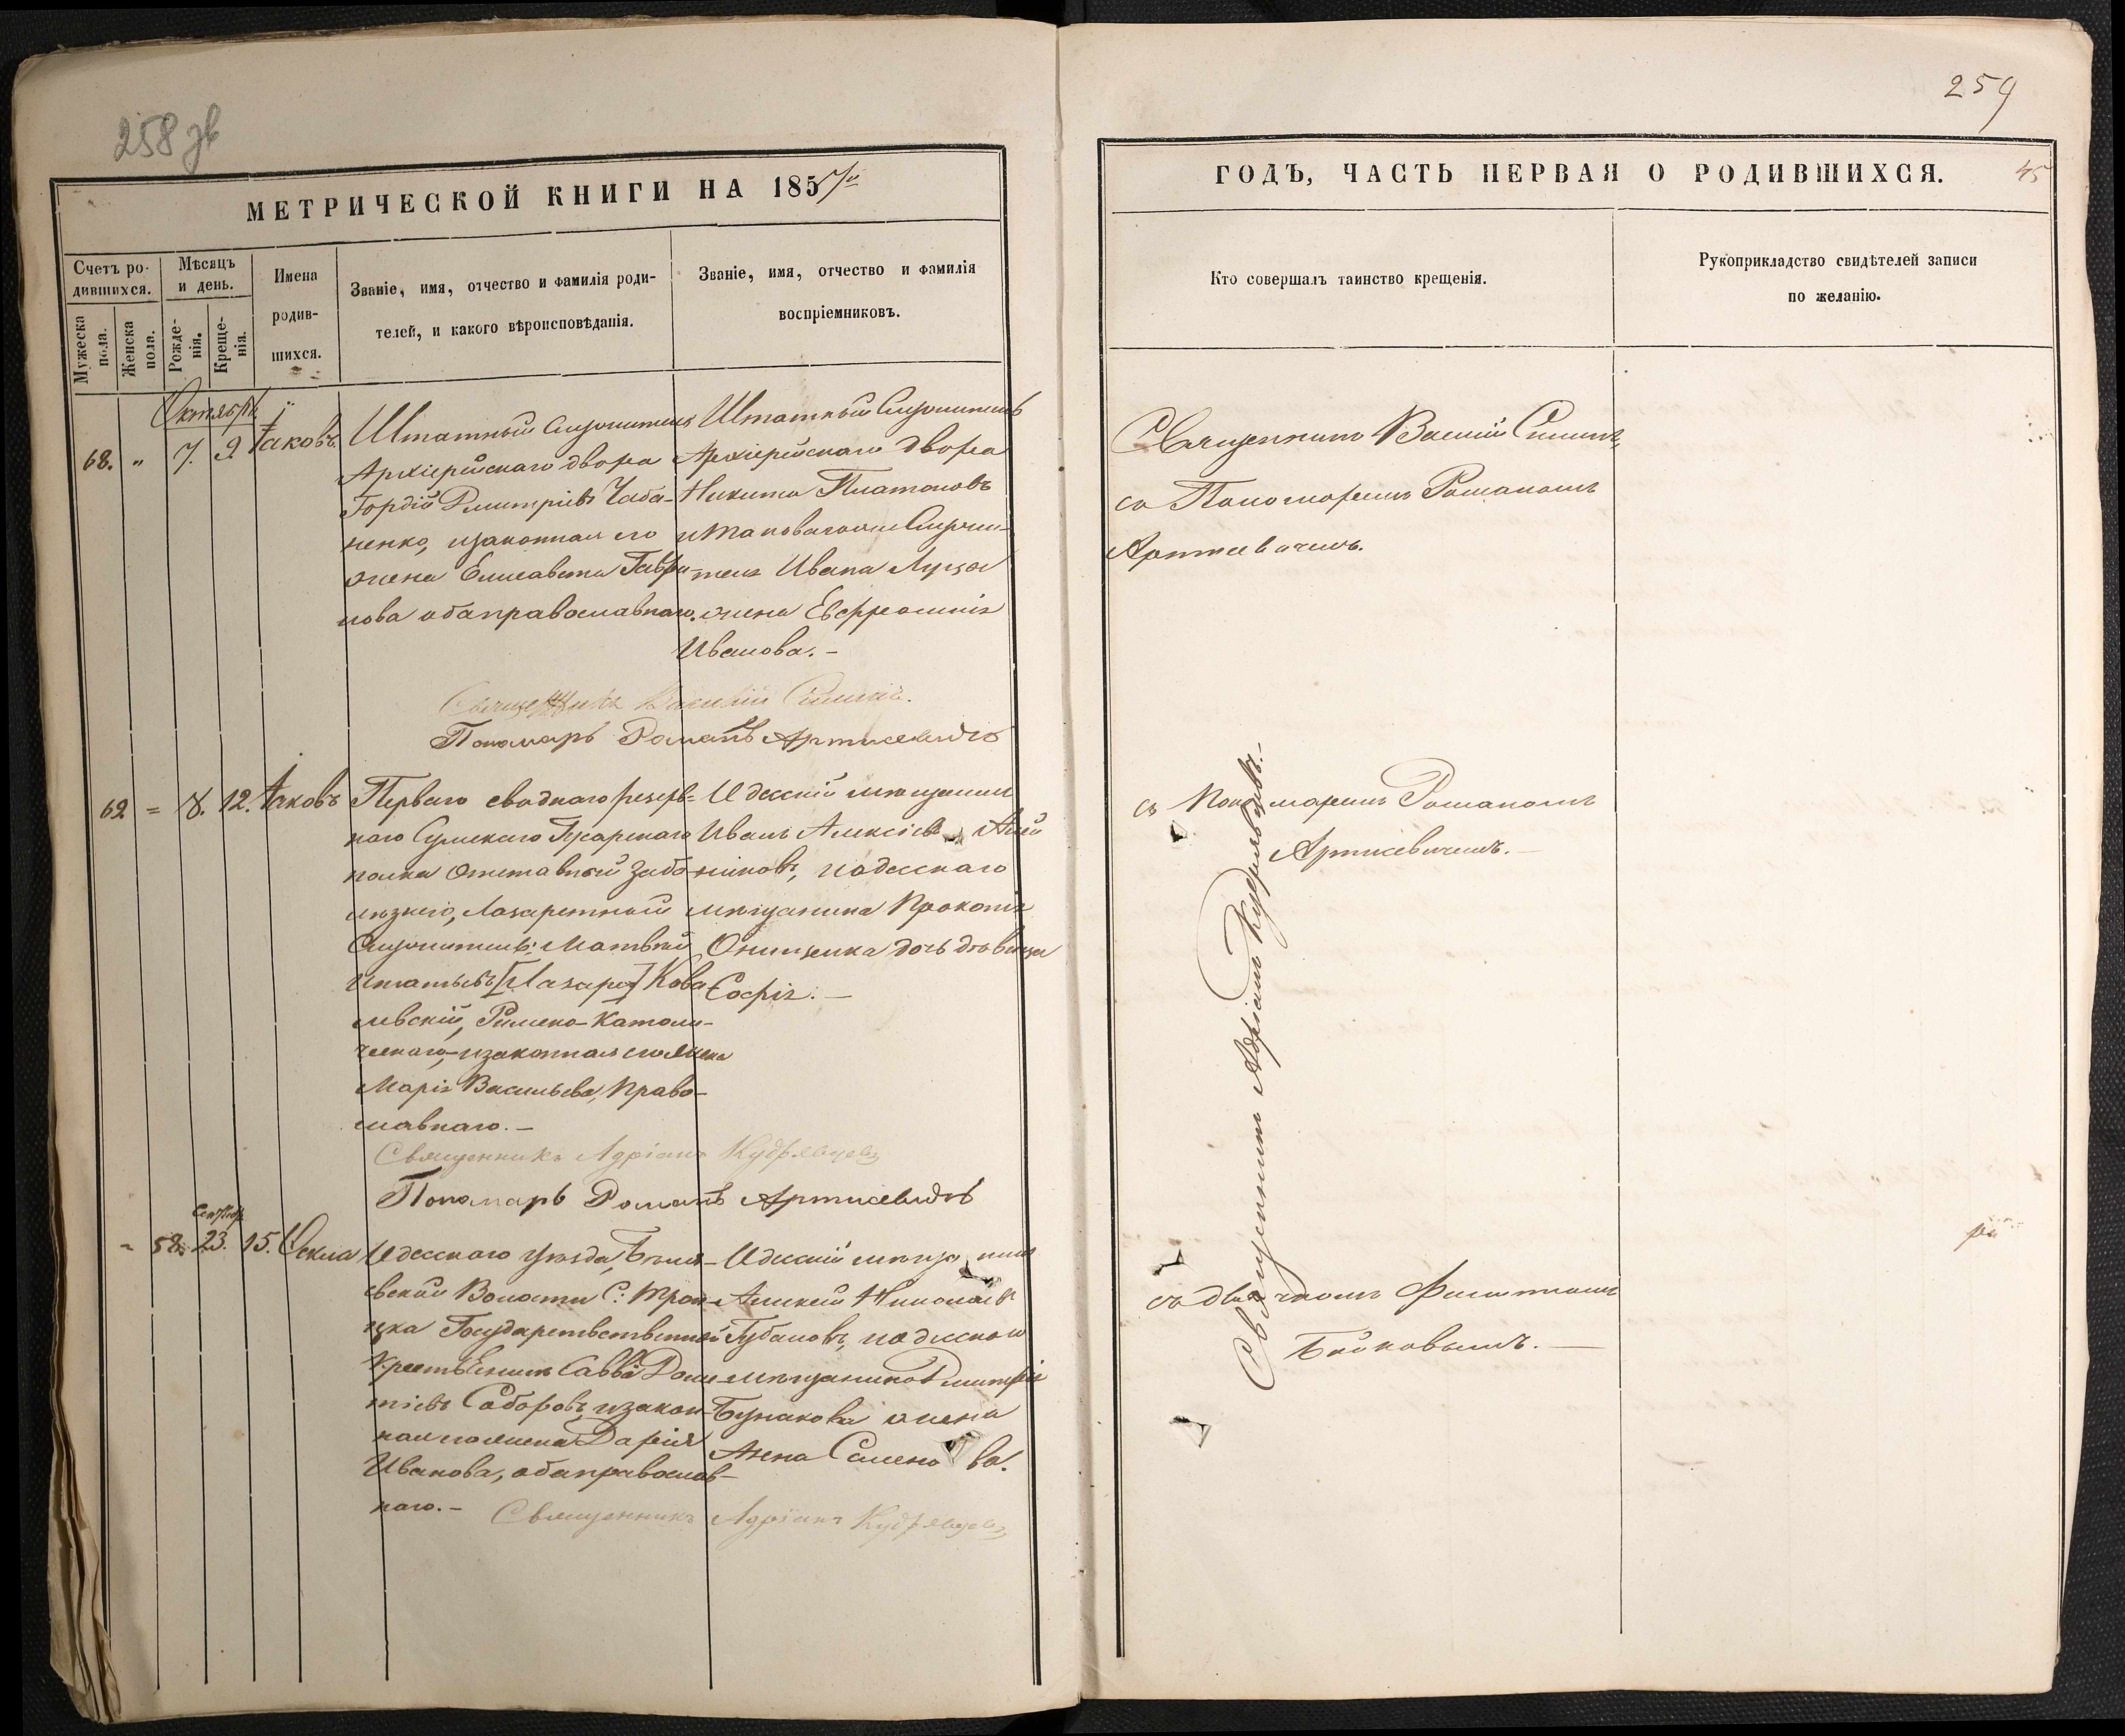 258 зв
МЕТРИЧЕСКОЙ КНИГИ НА 1857й
Счетъ ро-
дившихся.
Мѣсяцъ
и день.
Имена
родив-
шихся.
Званіе, имя, отчество и фамилія роди-
телей, и какого вѣроисповѣданія.
Званіе, имя, отчество и фамилія
воспріемниковъ.
Мужеска
пола.
Женска
пола.
Рожде-
нія.
Креще-
нія.
Октябрь
68. " 7. 9. Іаковъ.
Штатный Служитель
Архіерейскаго двора
Гордій Димитріевъ Чаба-
ненко, изаконная его
жена Елисавета Гаври-
лова обаправославнаго.
Штатный Служитель
Архіерейскаго двора
Никита Платоновъ
итаковагоже Служи-
теля Ивана
жена Евфросинія
Иванова. -
Священникъ Василій
Пономарь Романъ Артисевичъ
69 = 8. 12. Іаковъ
Перваго своднаго резерв-
наго Сумскаго Гусарскаго
полка отставный
Лазаретный
Служитель: Матвей
Игнатьевъ [Лазарь] Кова
левскій, Римско-Католи-
ческаго, изаконная егожена
Марія Васильева, Право-
славнаго. -
Одесскій мѣщанинъ
Иванъ Алексіевъ
иодесскаго
мѣщанина Прокопія
Онищенка дочь дѣвица
Софія. -
Священникъ Адріанъ Кудрявцевъ
Пономарь Романъ Артисевичъ
Сентябр
= 58. 23. 15. Ѳекла
Одесскаго уѣзда,
Волости С: Трои-
цка Государственный
Крестьянинъ Савва
Соборовъ, изакон-
ная егожена Дарія
Иванова, обаправослав-
наго. -
Одесскій мѣща нинъ
Алексей Николаевъ
Губановъ, иодесскаго
мѣщанина Димитрія
Бунакова жена
Анна Семено ва.
Священникъ Адріанъ Кудрявцевъ
259
ГОДЪ, ЧАСТЬ ПЕРВАЯ О РОДИВШИХСЯ.
45
Кто совершалъ таинство крещенія.
Рукоприкладство свидѣтелей записи
по желанію.
Священникъ Василій
со Пономаремъ Романомъ
Артисевичемъ.
Священникъ Адріанъ Кудрявцевъ. -
съ Пономаремъ Романомъ
Артисевичемъ. -
съ дьячкомъ Филиппомъ
Бойковымъ. -